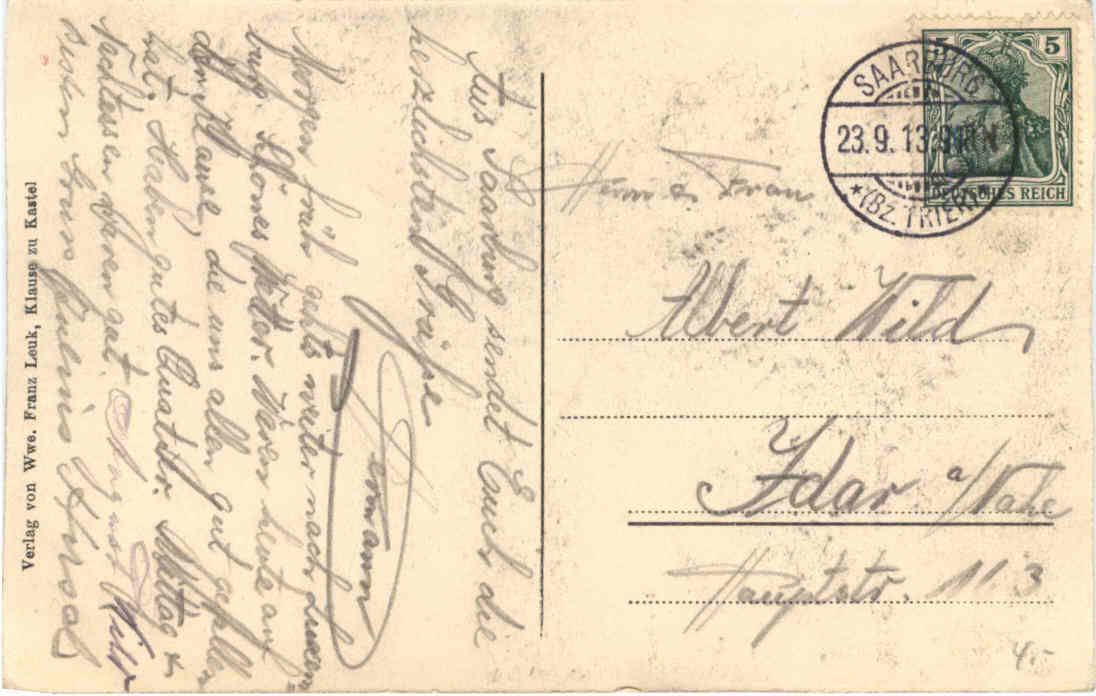 Aus Saarburg sendet Euch die
herzlichsten Grüße
Hermann
Morgen früh gehts weiter nach Luxem
burg. Schönes Wetter. Waren heute auf
der Klause, die uns allen gut gefallen
hat. Haben gutes Quartir. Mittag &
Nachtessen waren gut. August Wild
Verlag von Wwe. Franz Leuk, Klause zu Kastel
5 5
DEUTSCHES REICH
SAARBURG
23.9.13
*(BZ. TRIER)*
Frau
Albert Wild
Idar a/Nahe
Hauptstr. 113
4.-